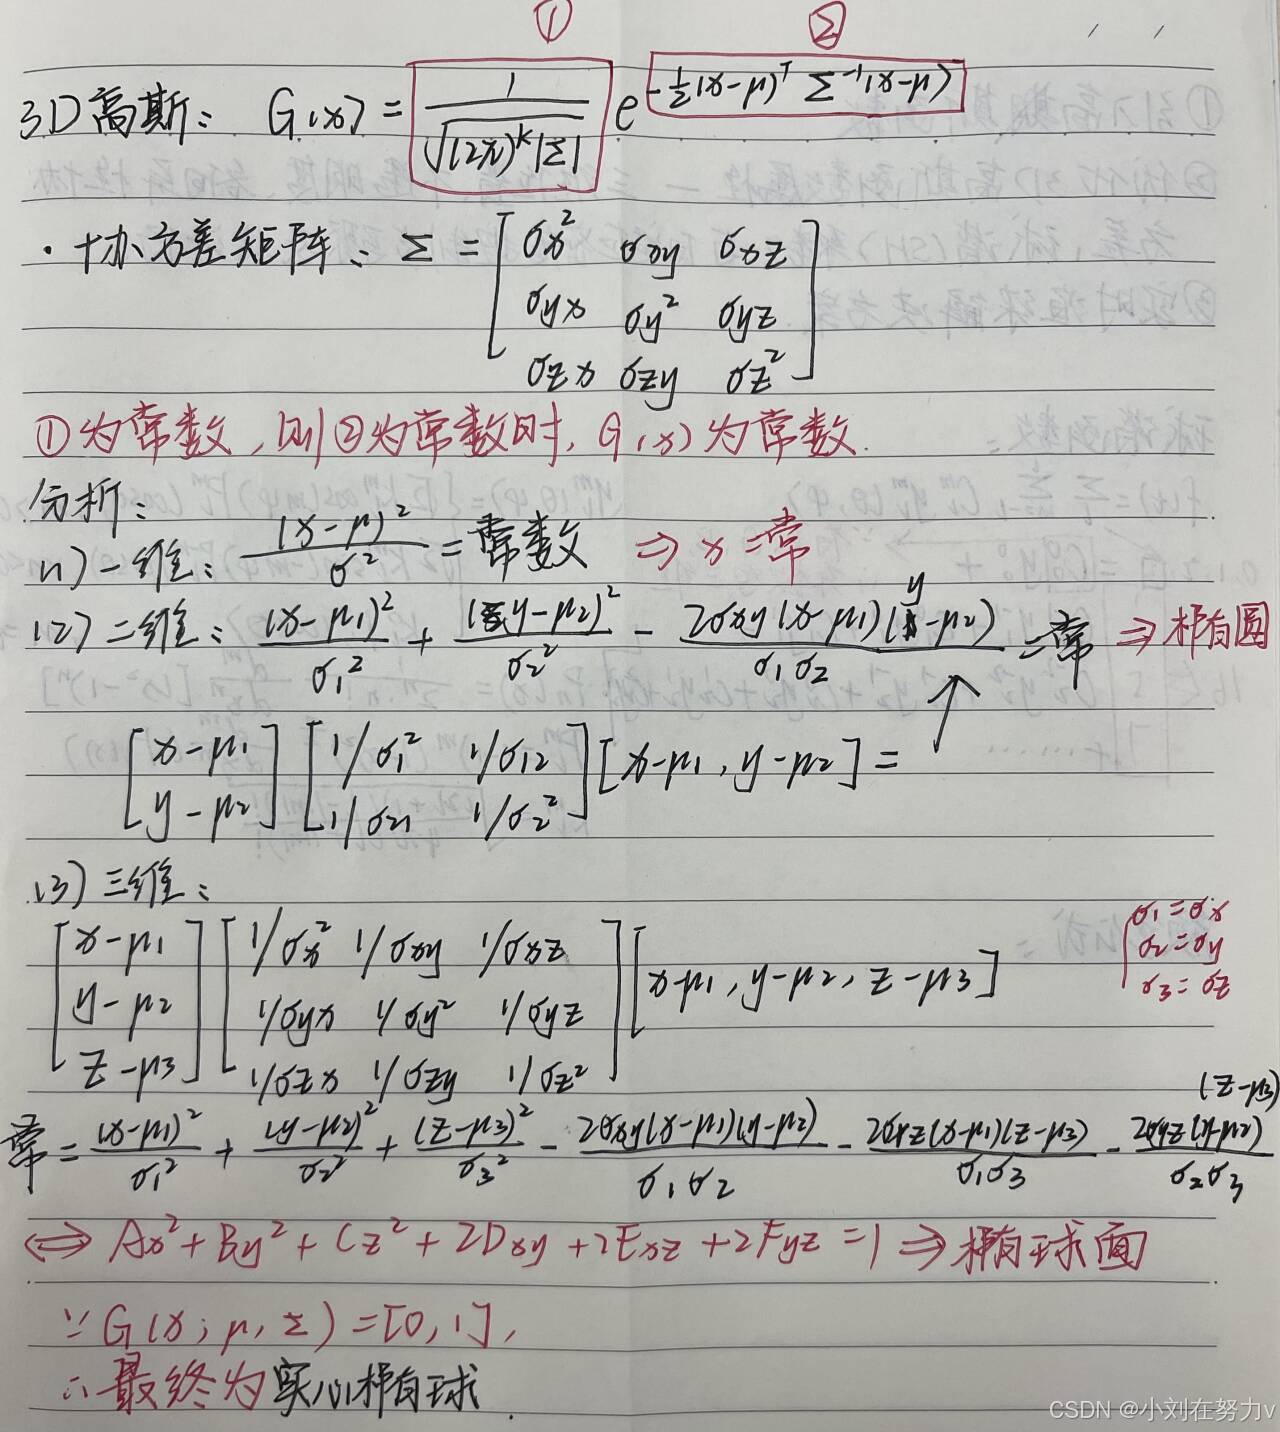 ① ②
3D高斯: G(x) = 1/√((2π)^k|Σ|) e^(-½(x-μ)^T Σ^-1(x-μ))
· 协方差矩阵: Σ = [σx² σxy σxz
σyx σy² σyz
σzx σzy σz²]
①为常数,则②为常数时, G(x)为常数.
分析:
(1) 一维: (x-μ)²/σ² = 常数 ⇒ x=常
(2) 二维: (x-μ1)²/σ1² + (y-μ2)²/σ2² - 2σxy(x-μ1)(y-μ2)/σ1σ2 = 常 ⇒ 椭圆
[x-μ1 [1/σ1² 1/σ12 [x-μ1, y-μ2] = ↑
y-μ2] 1/σ21 1/σ2²]
(3) 三维:
[x-μ1 [1/σx² 1/σxy 1/σxz σ1=σx
y-μ2 1/σyx 1/σy² 1/σyz [x-μ1, y-μ2, z-μ3] σ2=σy
z-μ3] 1/σzx 1/σzy 1/σz²] σ3=σz
常 = (x-μ1)²/σ1² + (y-μ2)²/σ2² + (z-μ3)²/σ3² - 2σxy(x-μ1)(y-μ2)/σ1σ2 - 2σxz(x-μ1)(z-μ3)/σ1σ3 - 2σyz(y-μ2)(z-μ3)/σ2σ3
⇔ Ax²+By²+Cz²+2Dxy+2Exz+2Fyz=1 ⇒ 椭球面
∵ G(x; μ, Σ) = [0,1],
∴ 最终为实心椭球.
CSDN @小刘在努力v